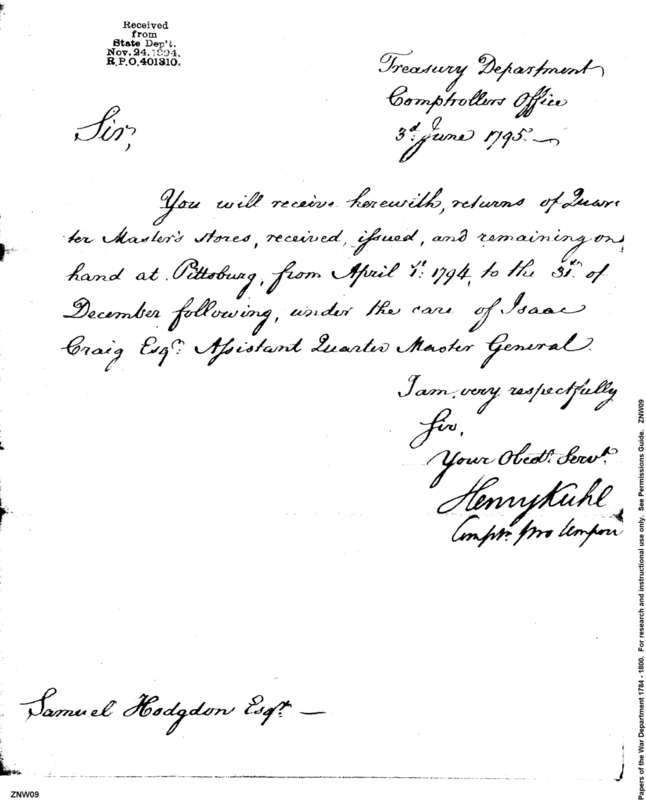 Received
from
State Dep't.
Nov. 24. 1894.
R.P.O. 401310.
Treasury Department
Comptrollers Office
3.d June 1795.
Sir,
You will receive herewith, returns of Quar-
ter Master's stores, received, issued, and remaining on
hand at Pittsburg, from April 1st: 1794, to the 31st of
December following, under the care of Isaac
Craig Esqr. Assistant Quarter Master General.
I am, very respectfully
Sir,
Your Obedt. Servt.
Henry Kuhl
Comptr. pro tempore
Samuel Hodgdon Esqr. —
ZNW09
Papers of the War Department 1784 - 1800. For research and instructional use only. See Permissions Guide. ZNW09